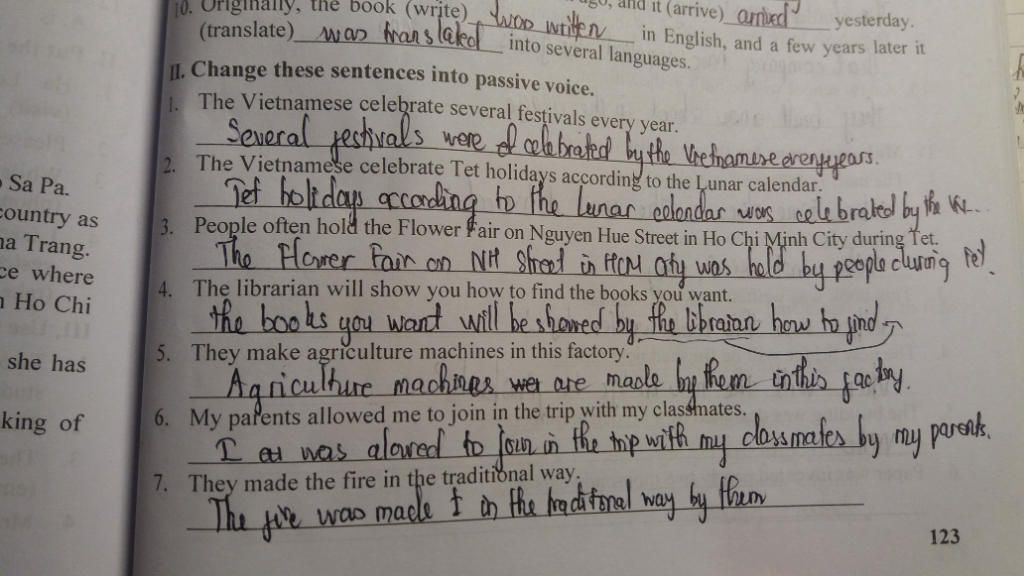 10. Originally, the book (write) was written in English, and a few years later it
ago, and it (arrive) arrived yesterday.
(translate) was translated into several languages.
II. Change these sentences into passive voice.
1. The Vietnamese celebrate several festivals every year.
Several festivals were celebrated by the Vietnamese
2. The Vietnamese celebrate Tet holidays according to the Lunar calendar.
Tet holidays according to the lunar calendar was celebrated by the
3. People often hold the Flower Fair on Nguyen Hue Street in Ho Chi Minh City during Tet.
The Flower Fair on NH Street in HCM City was held by people during Tet.
4. The librarian will show you how to find the books you want.
the books you want will be showed by the libraian how to find
5. They make agriculture machines in this factory.
Agriculture machines are made by them in this factory.
6. My parents allowed me to join in the trip with my classmates.
I was alowed to join in the trip with my classmates by my parents.
7. They made the fire in the traditional way.
The fire was made in the traditional way by them
123
Sa Pa.
country as
Trang.
ce where
Ho Chi
she has
king of